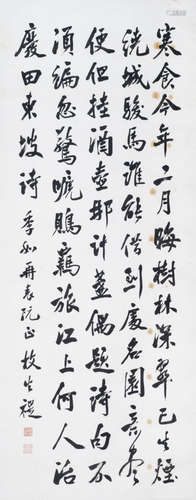 寒食今年二月晦樹林深翠已生煙
遶城駿馬誰能借到處名園意盡
便但挂酒壺那計盞偶題詩句不
須編忽驚嗁鵙羈旅江上何人治
廢田東坡詩 再表阮正 枚生